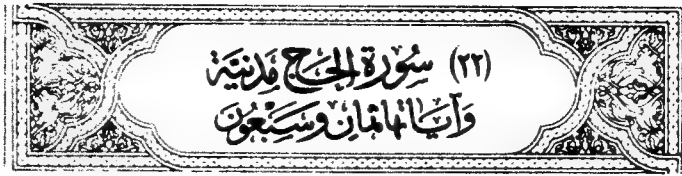 (٢٢) سُورَةُ الْحَجِّ مَدَنِيَّةٌ
وَآيَاتُهَا ثَمَانٍ وَسَبْعُونَ